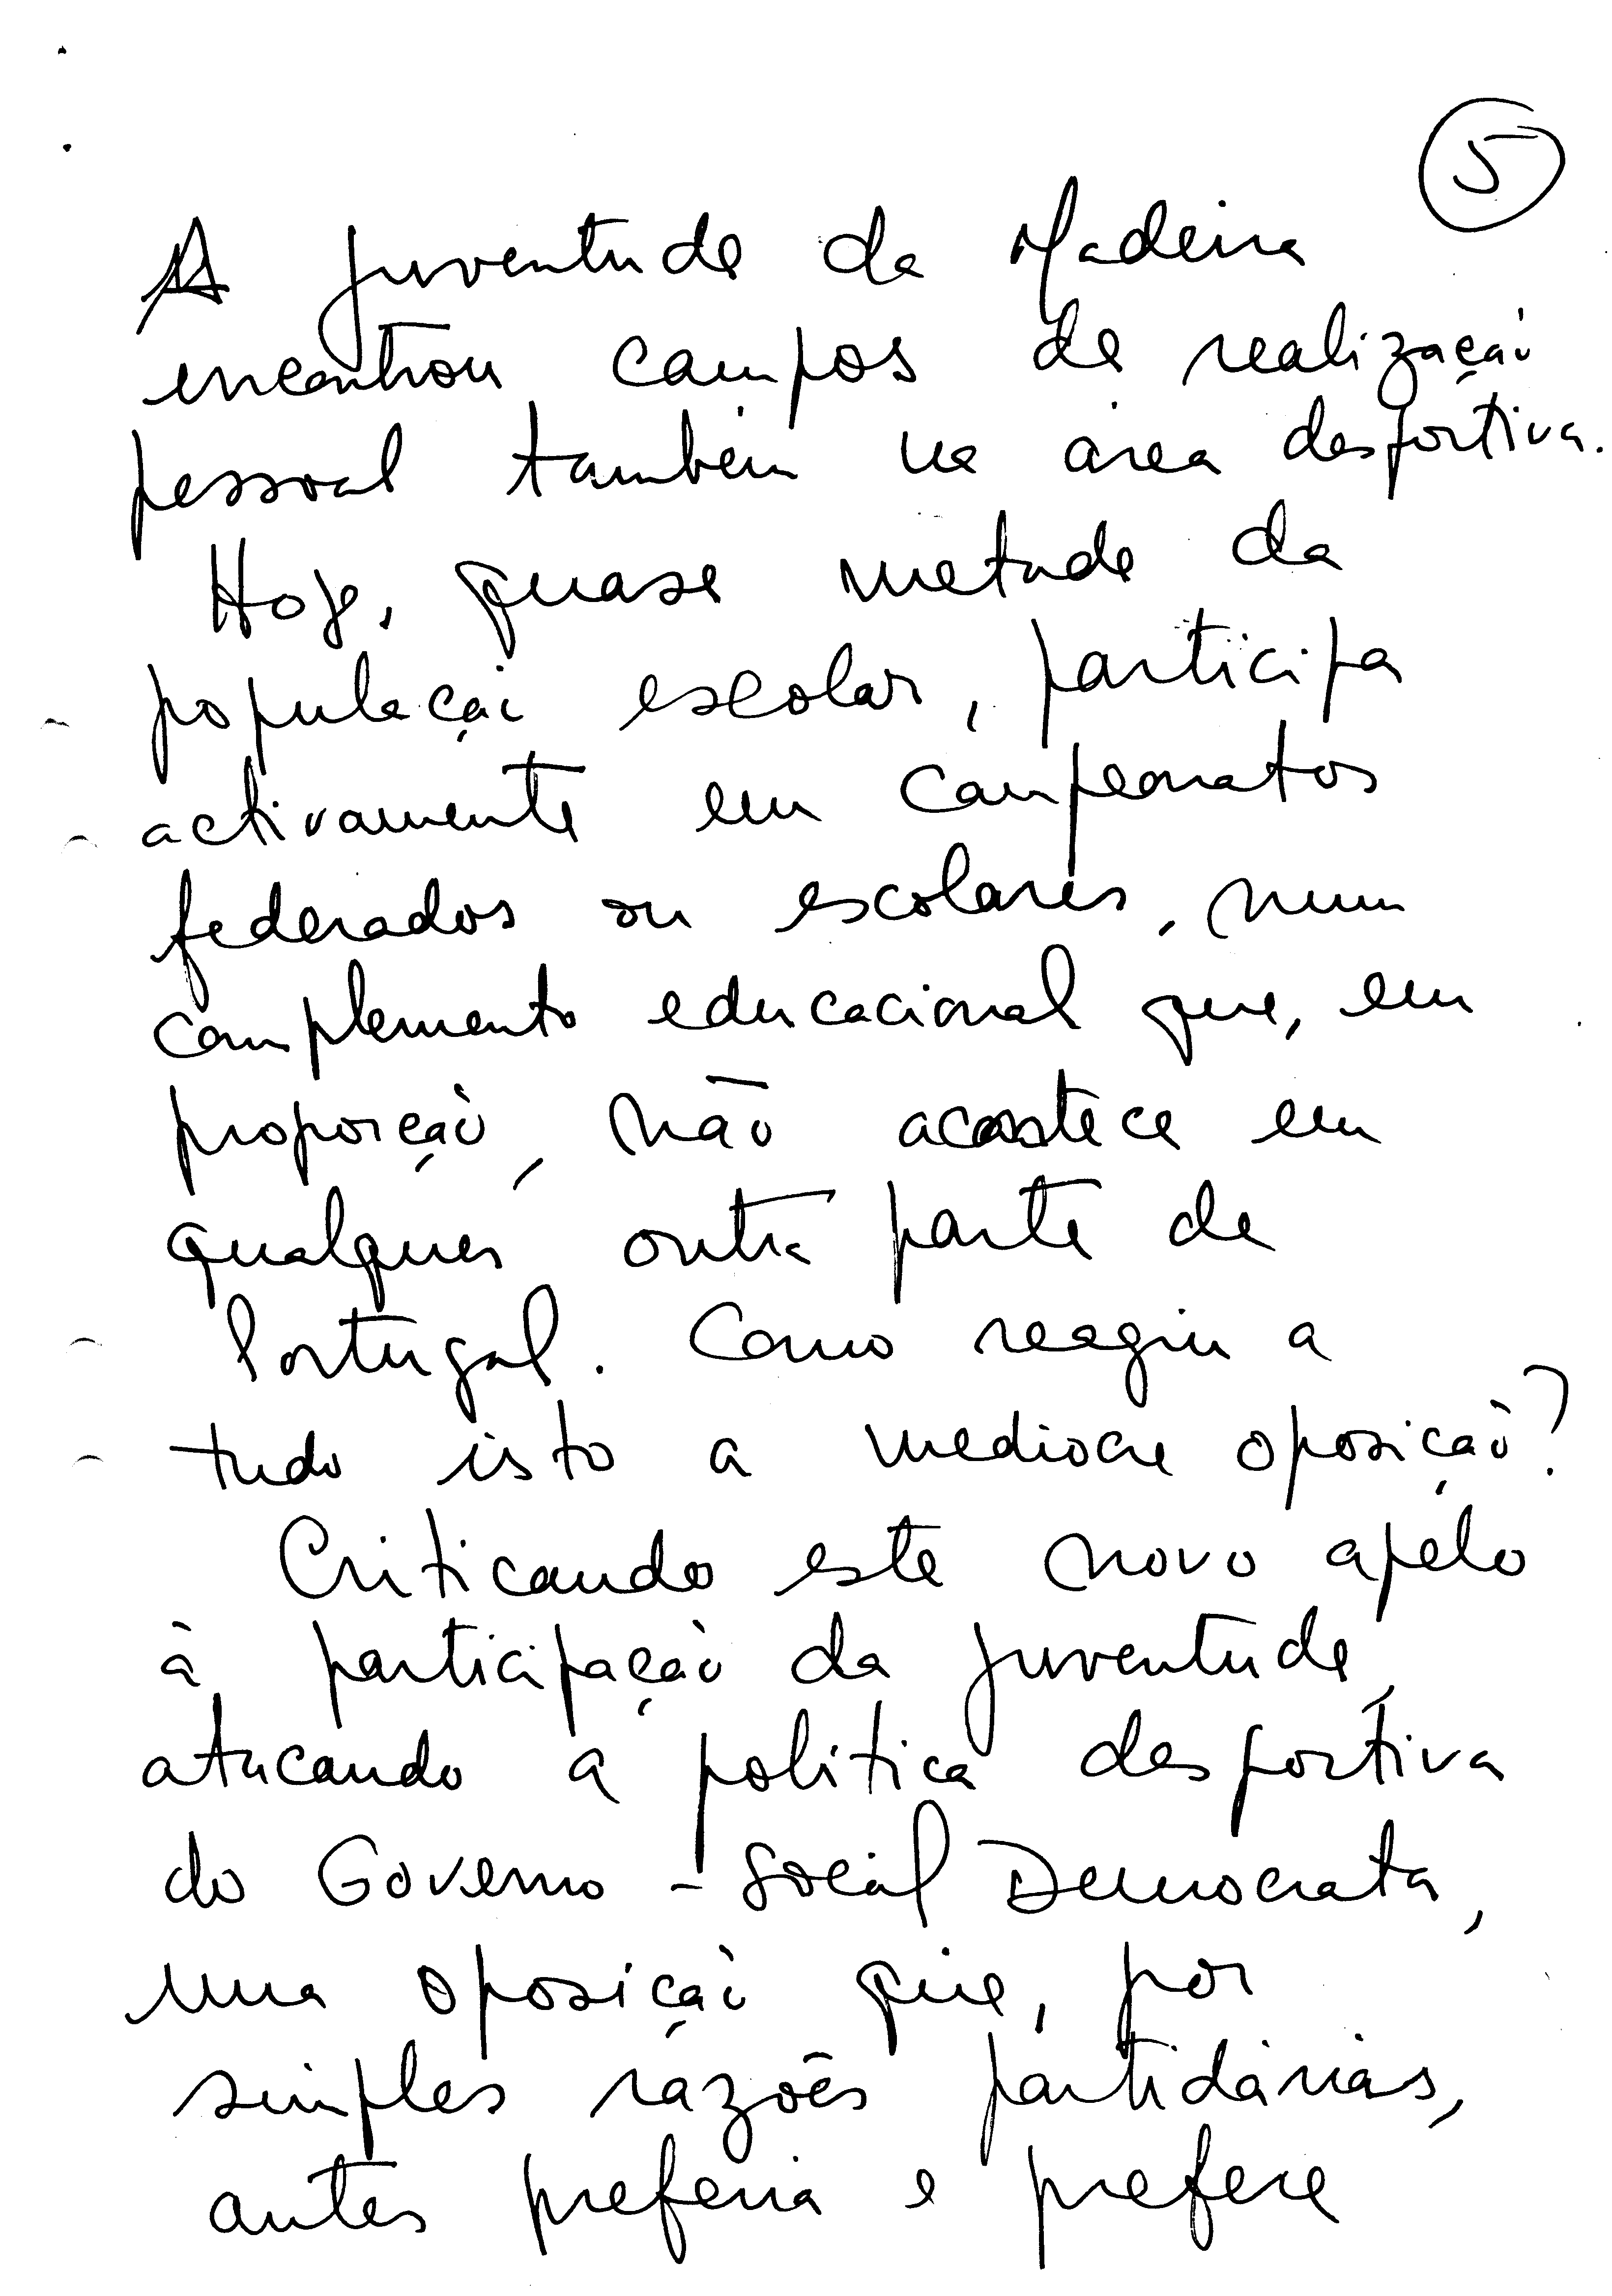 5
A juventude da Madeira
encontrou campos de realização
pessoal também na área desportiva.
Hoje, quase metade da
população escolar, participa
activamente em campeonatos
federados ou escolares, num
complemento educacional que, em
proporção, não acontece em
qualquer outra parte de
Portugal. Como reagiu a
tudo isto a medíocre oposição?
Criticando este novo apelo
à participação da juventude,
atacando a política desportiva
do Governo - Social Democrata,
uma oposição que, por
simples razões partidárias,
antes preferia e prefere